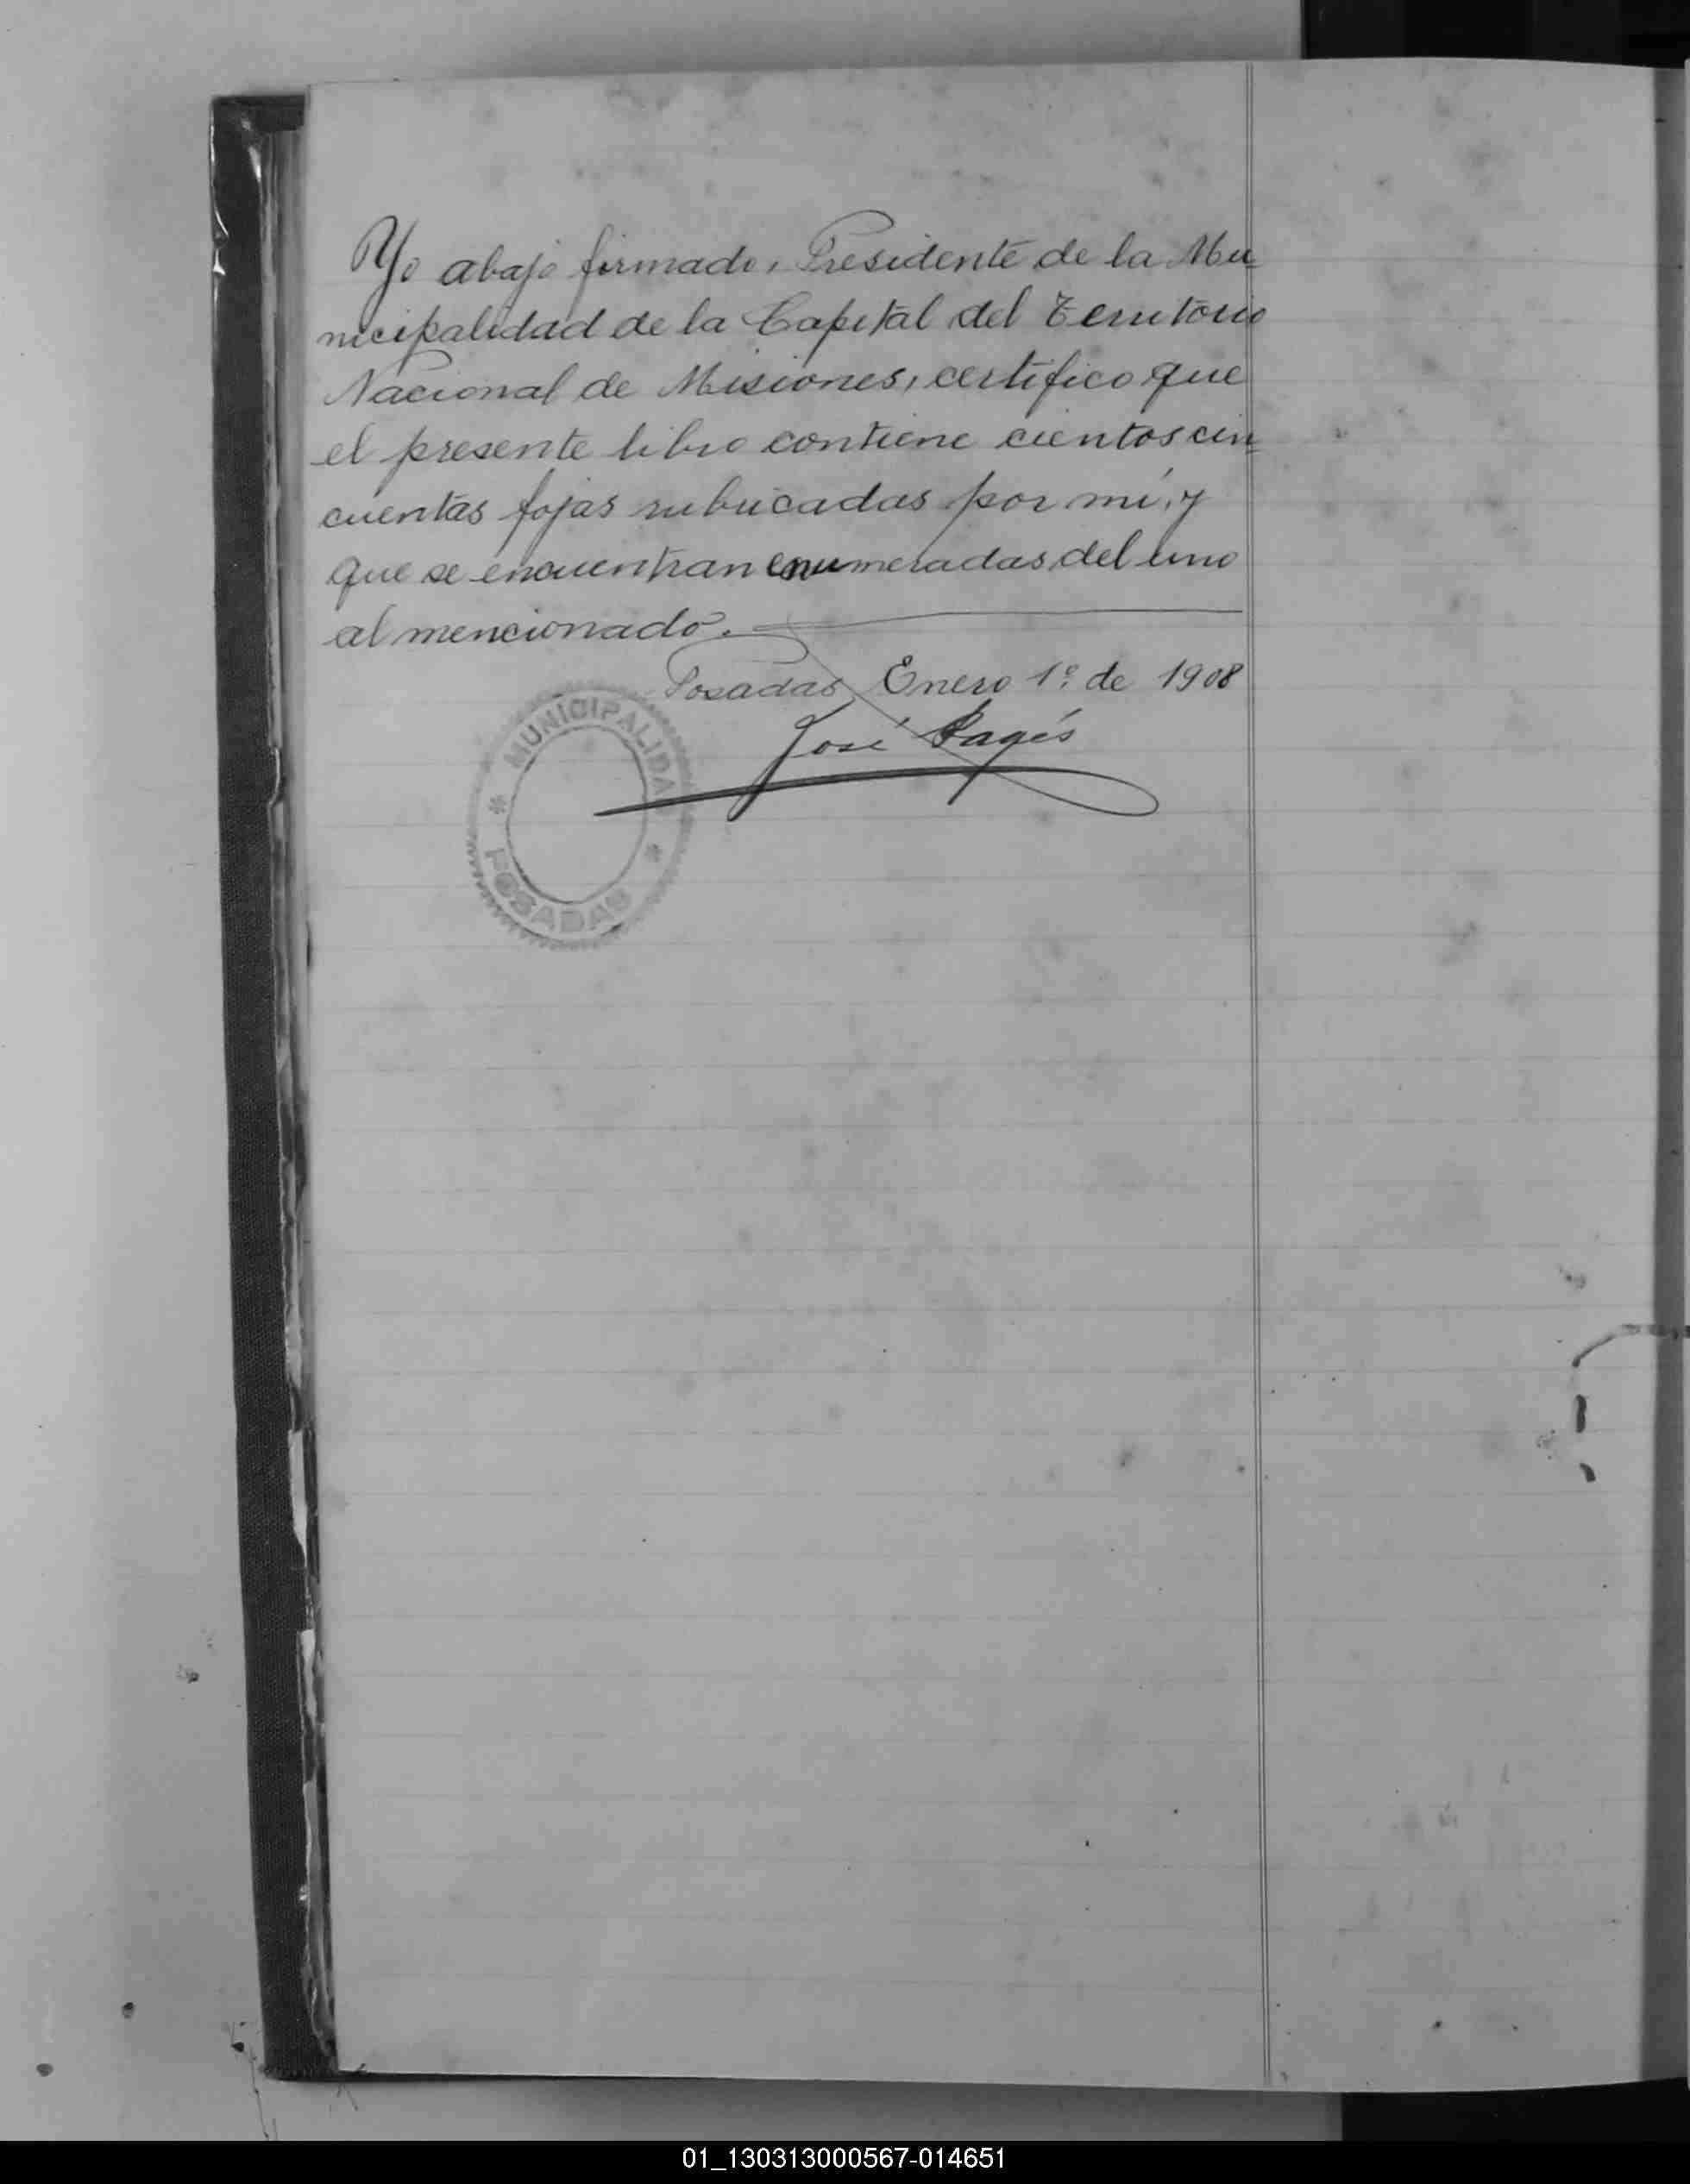 Yo abajo firmado, Presidente de la Mu-
nicipalidad de la Capital del Territorio
Nacional de Misiones, certifico que
el presente libro contiene cientos cin-
cuentas fojas rubricadas por mí, y
que se encuentran enumeradas del uno
al mencionado.
Posadas Enero 1º de 1908
José Pagés
MUNICIPALIDAD
POSADAS
01_130313000567-014651